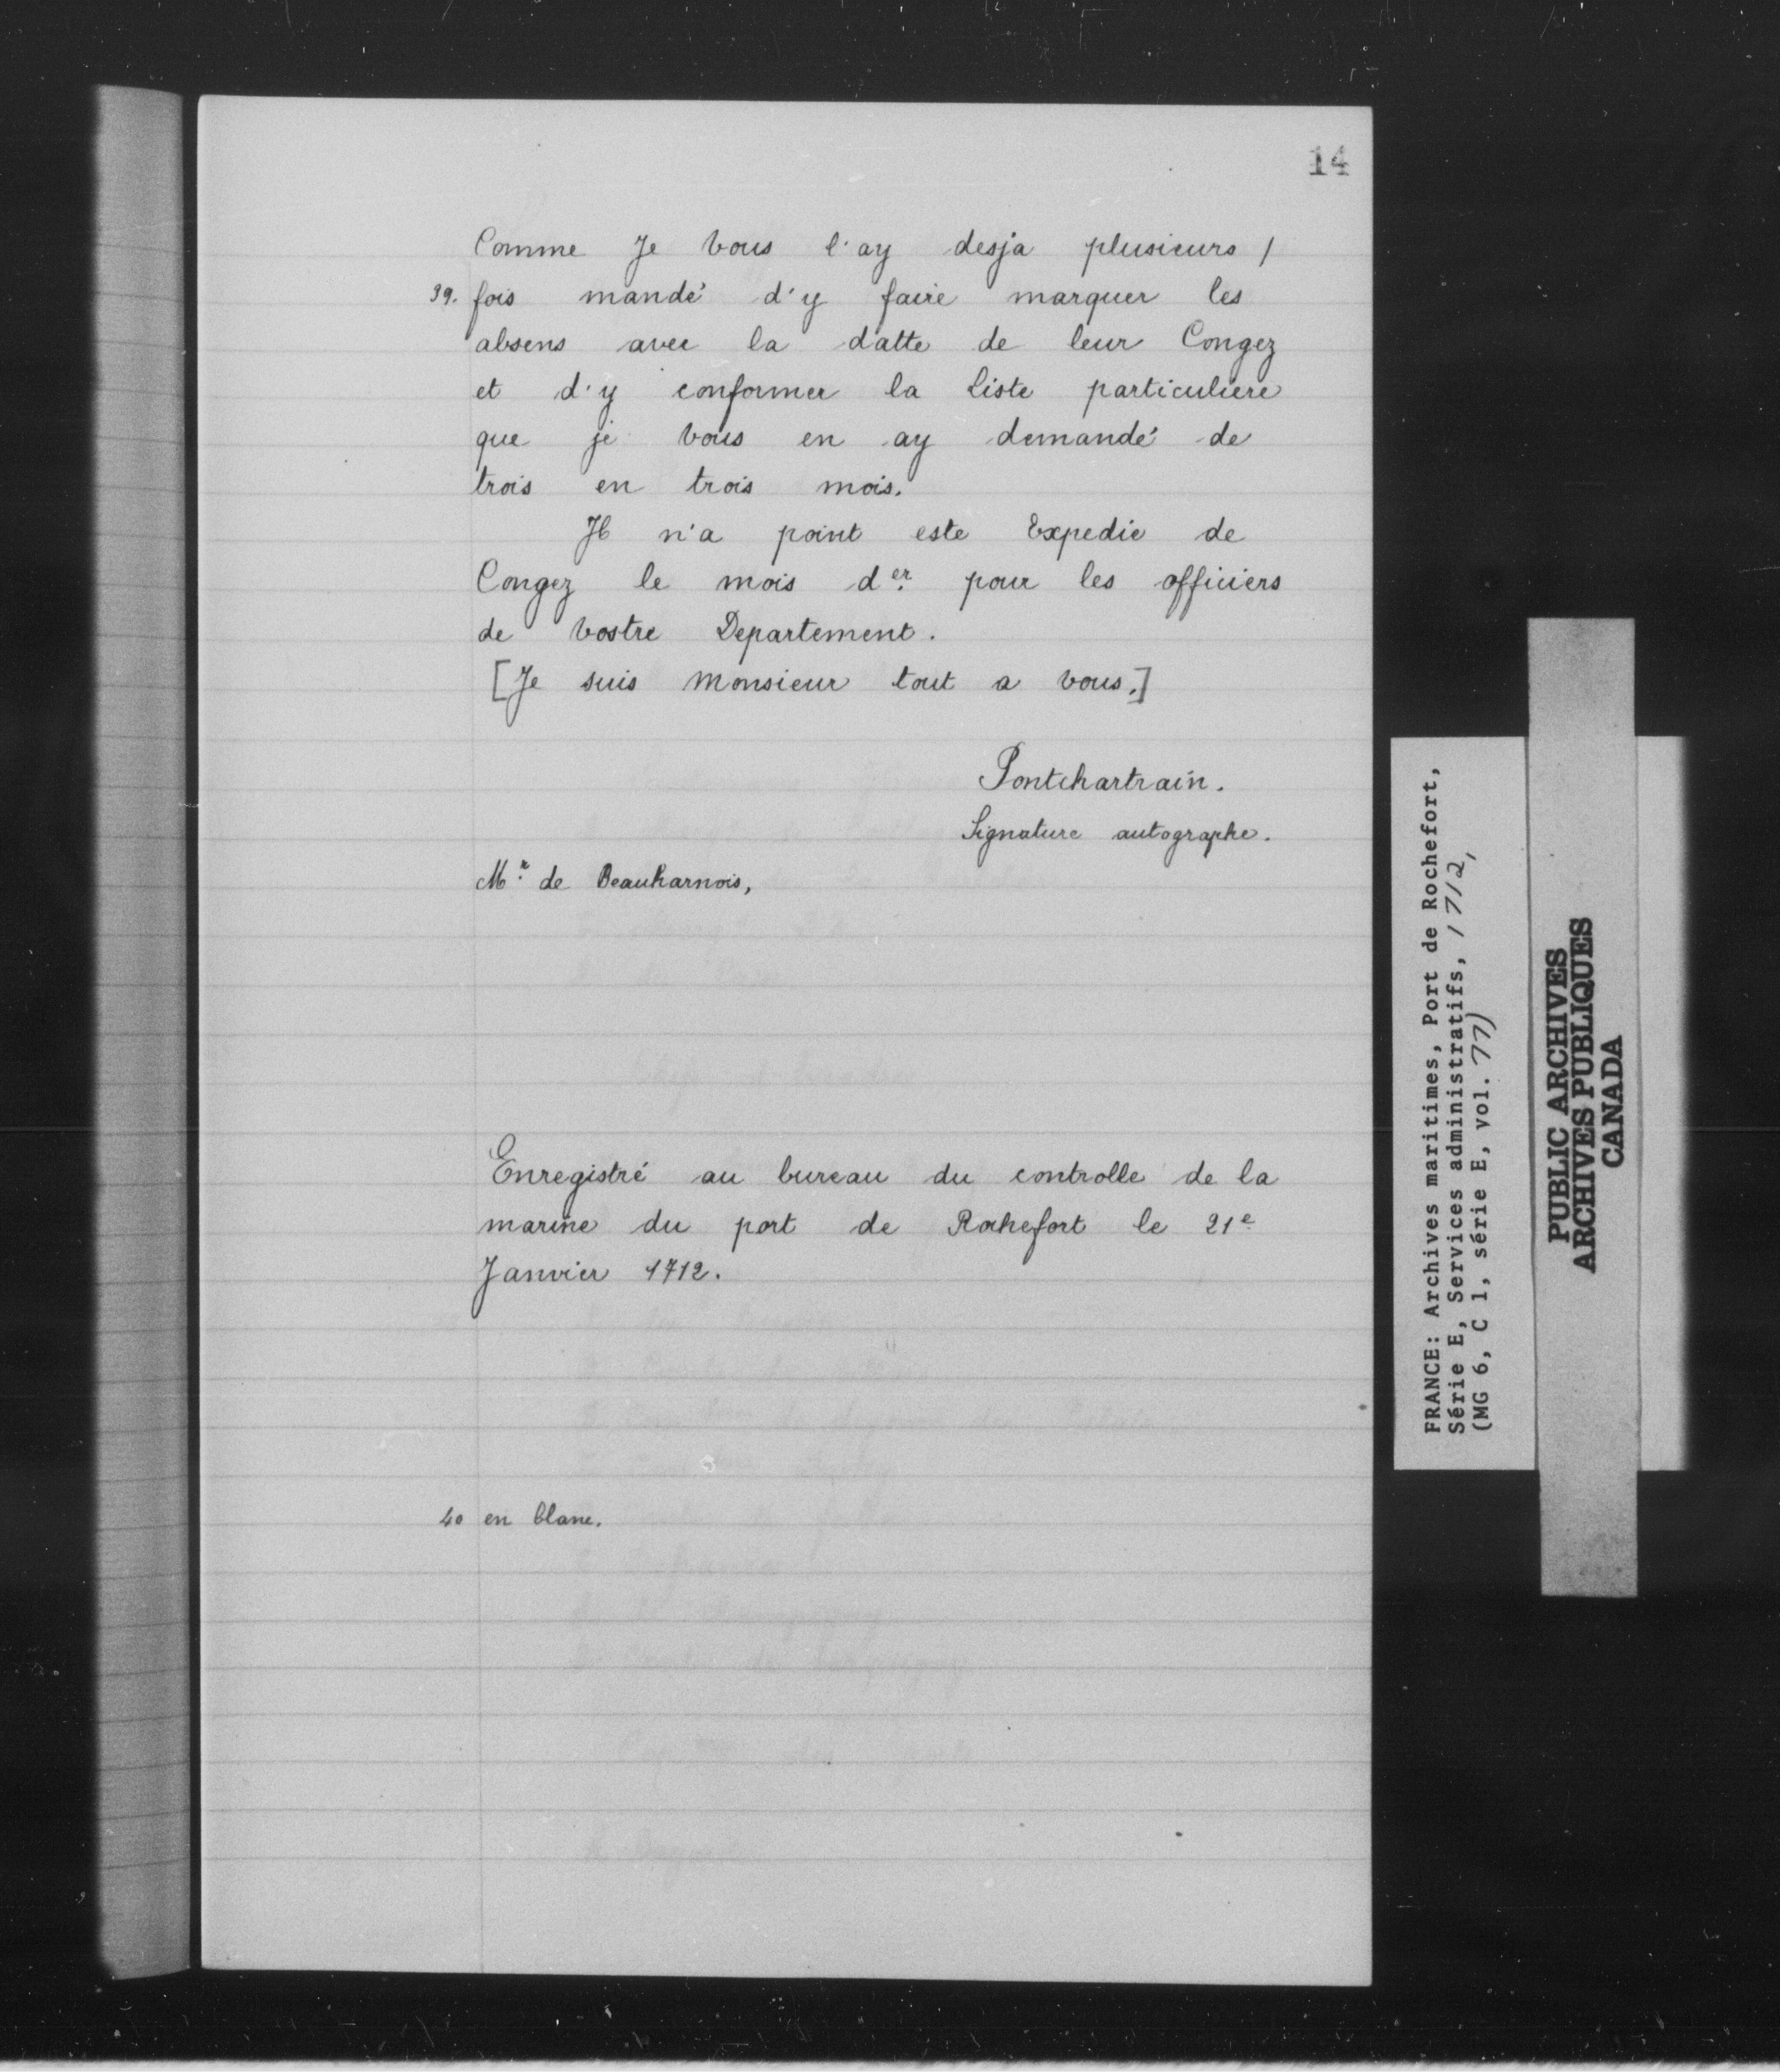 14
Comme Je vous l'ay desja plusieurs /
39. fois mandé d'y faire marquer les
absens avec la datte de leur Congez
et d'y conformer la Liste particuliere
que je vous en ay demandé de
trois en trois mois.
Il n'a point este Expedie de
Congez le mois der. pour les officiers
de vostre Departement.
[Je suis Monsieur tout a vous.]
Pontchartrain.
Signature autographe.
Mr. de Beauharnois,
Enregistré au bureau du controlle de la
marine du port de Rochefort le 21e
Janvier 1712.
40 en blanc.
FRANCE: Archives maritimes, Port de Rochefort,
Série E, Services administratifs, 1712,
(MG 6, C 1, série E, vol. 77)
PUBLIC ARCHIVES
ARCHIVES PUBLIQUES
CANADA